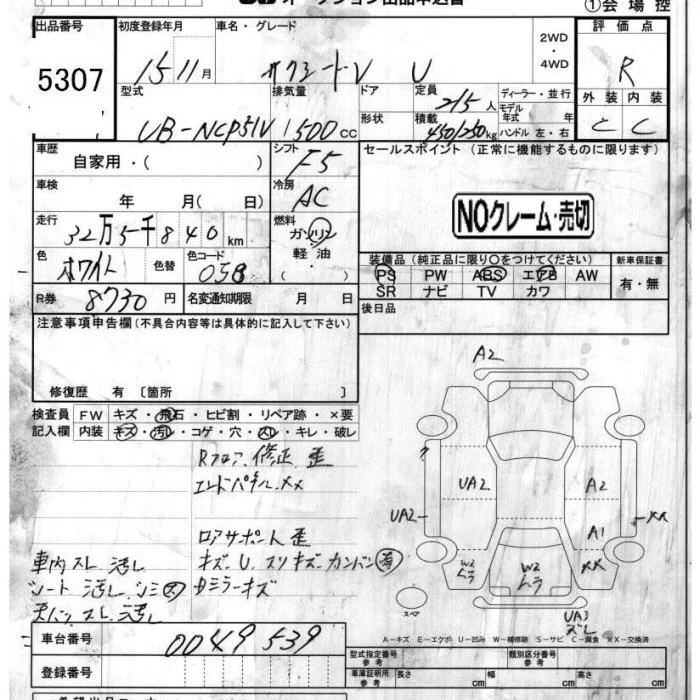 オークション出品申込書
①会場控
出品番号 初度登録年月 車名・グレード 2WD・4WD 評価点
5307 15 11月 サクシードV U R
外装 内装
C C
型式 排気量 ドア 定員 215人 ディーラー・並行
モデル年式 年
UB-NCP51V 1500cc 形状 積載 450/250kg ハンドル 左・右
車歴 自家用・( ) シフト F5
セールスポイント (正常に機能するものに限ります)
車検 年 月( 日) 冷房 AC
NOクレーム・売切
走行 32万5千840km 燃料 ガソリン・軽油・
色 ホワイト 色替 色コード 058
装備品 (純正品に限り○をつけてください) 新車保証書
PS PW ABS エアB AW 有・無
SR ナビ TV カワ
R券 8730円 名変通知期限 月 日
後日品
注意事項申告欄(不具合内容等は具体的に記入して下さい)
修復歴 有〔箇所 〕
検査員 FW キズ・飛石・ヒビ割・リペア跡・×要
記入欄 内装 キズ・汚レ・コゲ・穴・スレ・キレ・破レ
Rフロア 修正 歪
エンドパネル XX
ロアサポート 歪
キズ・U スリキズ カンバン 有
車内スレ 汚レ
シート 汚レ シミ 大
天バリ スレ 汚レ
ドミラーキズ
A2
UA2 A2
UA2 XX
A1
W2 ムラ W2 ムラ XX
スペア
UA3 ズレ
A-キズ E-エクボ U-凹み W-補修跡 S-サビ C-腐食 XX-交換済
車台番号 0049539
登録番号
型式指定番号 参考 類別区分番号 参考
車庫証明用 参考 長さ cm 幅 cm 高さ cm